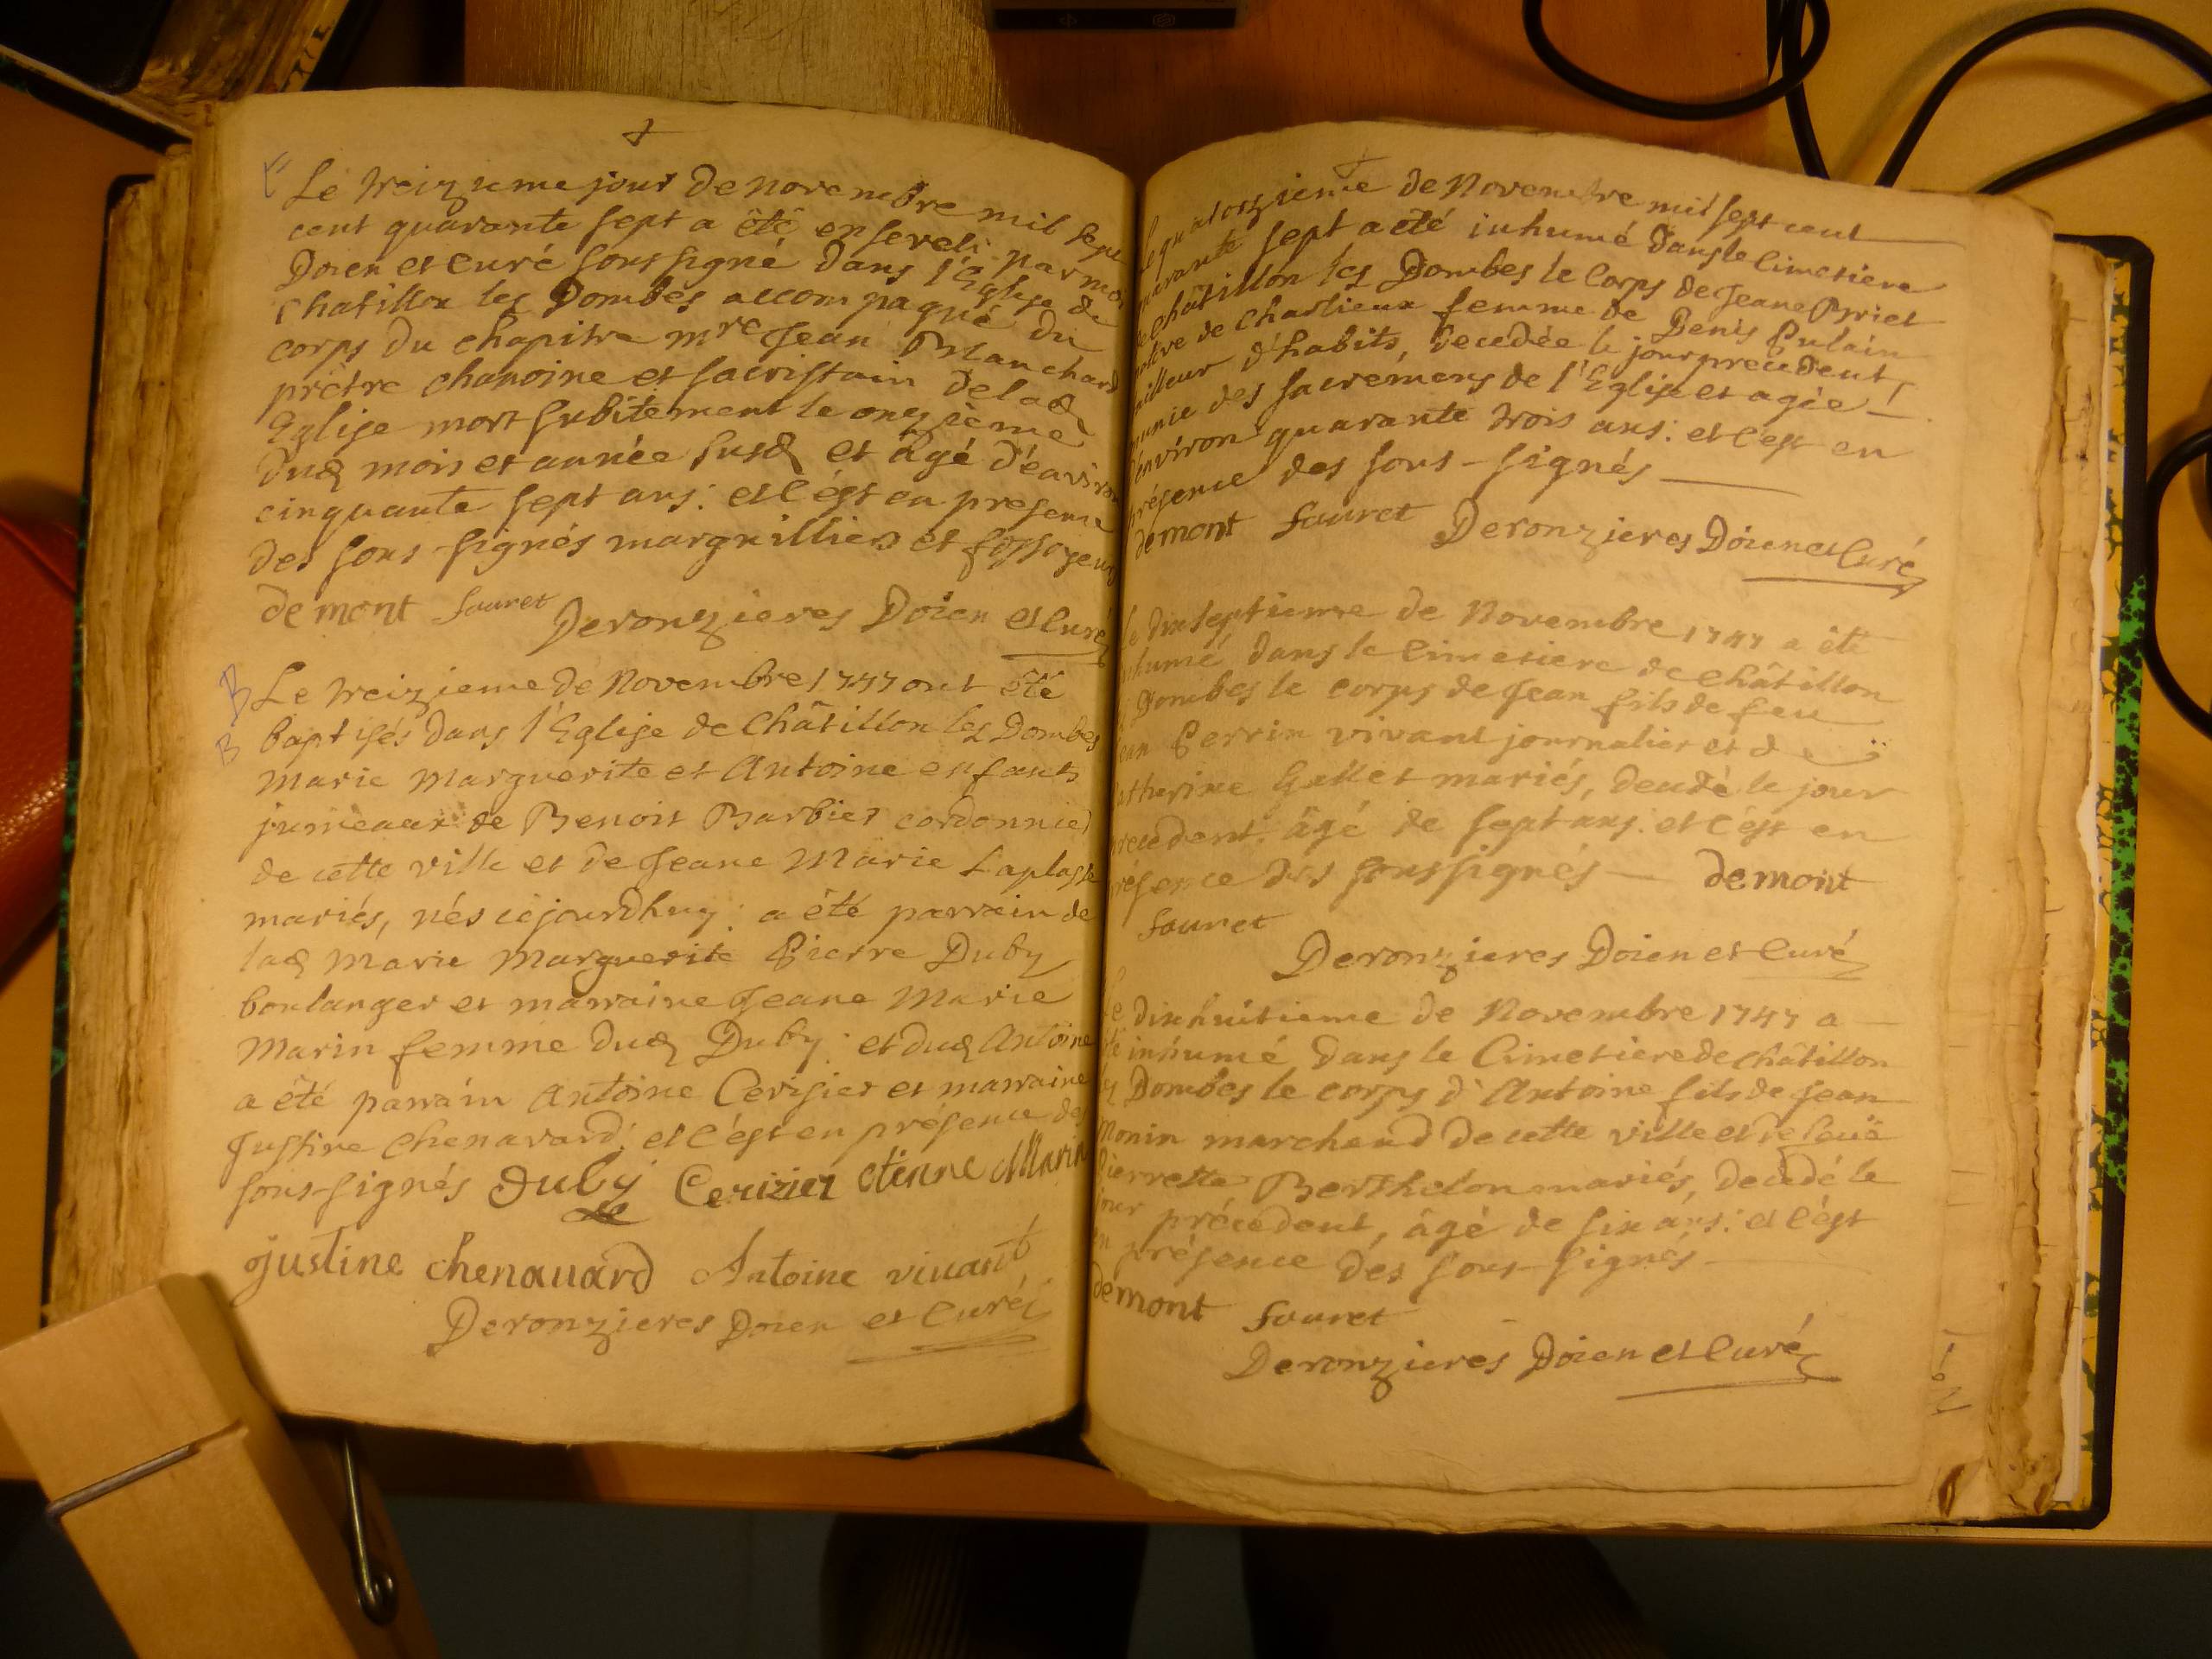 Le treizieme jour de novembre mil sept
cent quarante sept a êtê enseveli par moi
Doien et curé soussigné dans l'Eglise de
Chatillon les Dombes accompagné du
corps du chapitre mre Jean Blanchard
prêtre chanoine et sacristain de lad
Eglise mort subitement le onzieme
dud mois et année susd et âgé d'environ
cinquante sept ans: et c'ést en presence
des sous-signés marguilliers et fossoyeur
demont Sauret Deronzieres Doien et curé
B Le treizieme de Novembre 1747 ont êté
B baptisés dans l'Eglise de Châtillon les Dombes
Marie Marguerite et Antoine enfants
jumeaux de Benoit Barbier cordonnier
de cette ville et de Jeane Marie Laplasse
mariés, nés cejourdhuy: a êté parrain de
lad Marie Marguerite Pierre Duby
boulanger et marraine Jeane Marie
Marin femme dud Duby: et dud Antoine
a êté parrain Antoine Cerisier et marraine
Justine Chenavard: et c'ést en présence des
sous-signés Duby Cerizier etienne Marin
justine chenauard Antoine viuant
Deronzieres Doien et Curé
Le quatorzieme de Novembre mil sept cent
quarante sept a eté inhumé dans le Cimetiere
de Châtillon les Dombes le Corps de Jeane Briet
native de Charlieux femme de Denis Pulain
tailleur d'habits, decedée le jour precedent,
munie des sacremens de l'Eglise et agée
d'environ quarante trois ans: et c'est en
présence des sous-signés
demont Sauret Deronzieres Doien et Curé
Le dixseptieme de Novembre 1747 a êté
inhumé dans le Cimetiere de Châtillon
les Dombes le corps de Jean fils de feu
Jean Perrin vivant journalier et de
Catherine mariés, decedé le jour
precedent, âgé de sept ans: et c'est en
présence des soussignés demont
Sauret
Deronzieres Doien et Curé
Le dixhuitieme de Novembre 1747 a
êté inhumé dans le Cimetiere de châtillon
les Dombes le corps d'Antoine fils de Jean
Monin marchand de cette ville et de
Pierrette Berthelon mariés, decedé le
jour précedent, âgé de six ans: et c'ést
en présence des sous-signés
demont Sauret
Deronzieres Doien et Curé